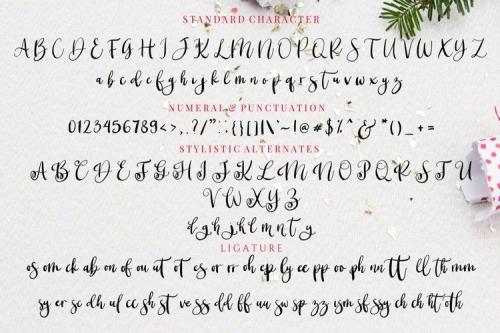 STANDARD CHARACTER
A B C D E F G H I J K L M N O P Q R S T U V W X Y Z
a b c d e f g h i j k l m n o p q r s t u v w x y z
NUMERAL & PUNCTUATION
0123456789<>,.?/":;{}[]|\`~!@#$%^&*()_-+=
STYLISTIC ALTERNATES
A B C D E F G H I J K L M N O P Q R S T U
V W X Y Z
d g h j k l m n t y
LIGATURE
os om ck ab on of ou ut ot es or rr oh ep ly ee pp oo ph nn tt ll th mm
sy er sc dh uf cc sh st ve ss dd ff uu sw sp zz ism sf ssy ch ck ht oth